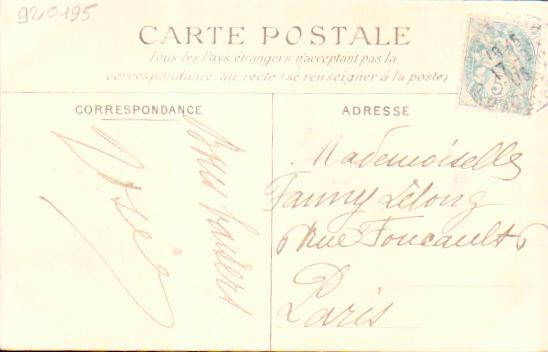 920195
CARTE POSTALE
Tous les Pays étrangers n'acceptant pas la
correspondance au recto (se renseigner à la poste)
CORRESPONDANCE
ADRESSE
Bons baisers
Mademoiselle
Fanny Lelong
6 Rue Foucault 6
Paris